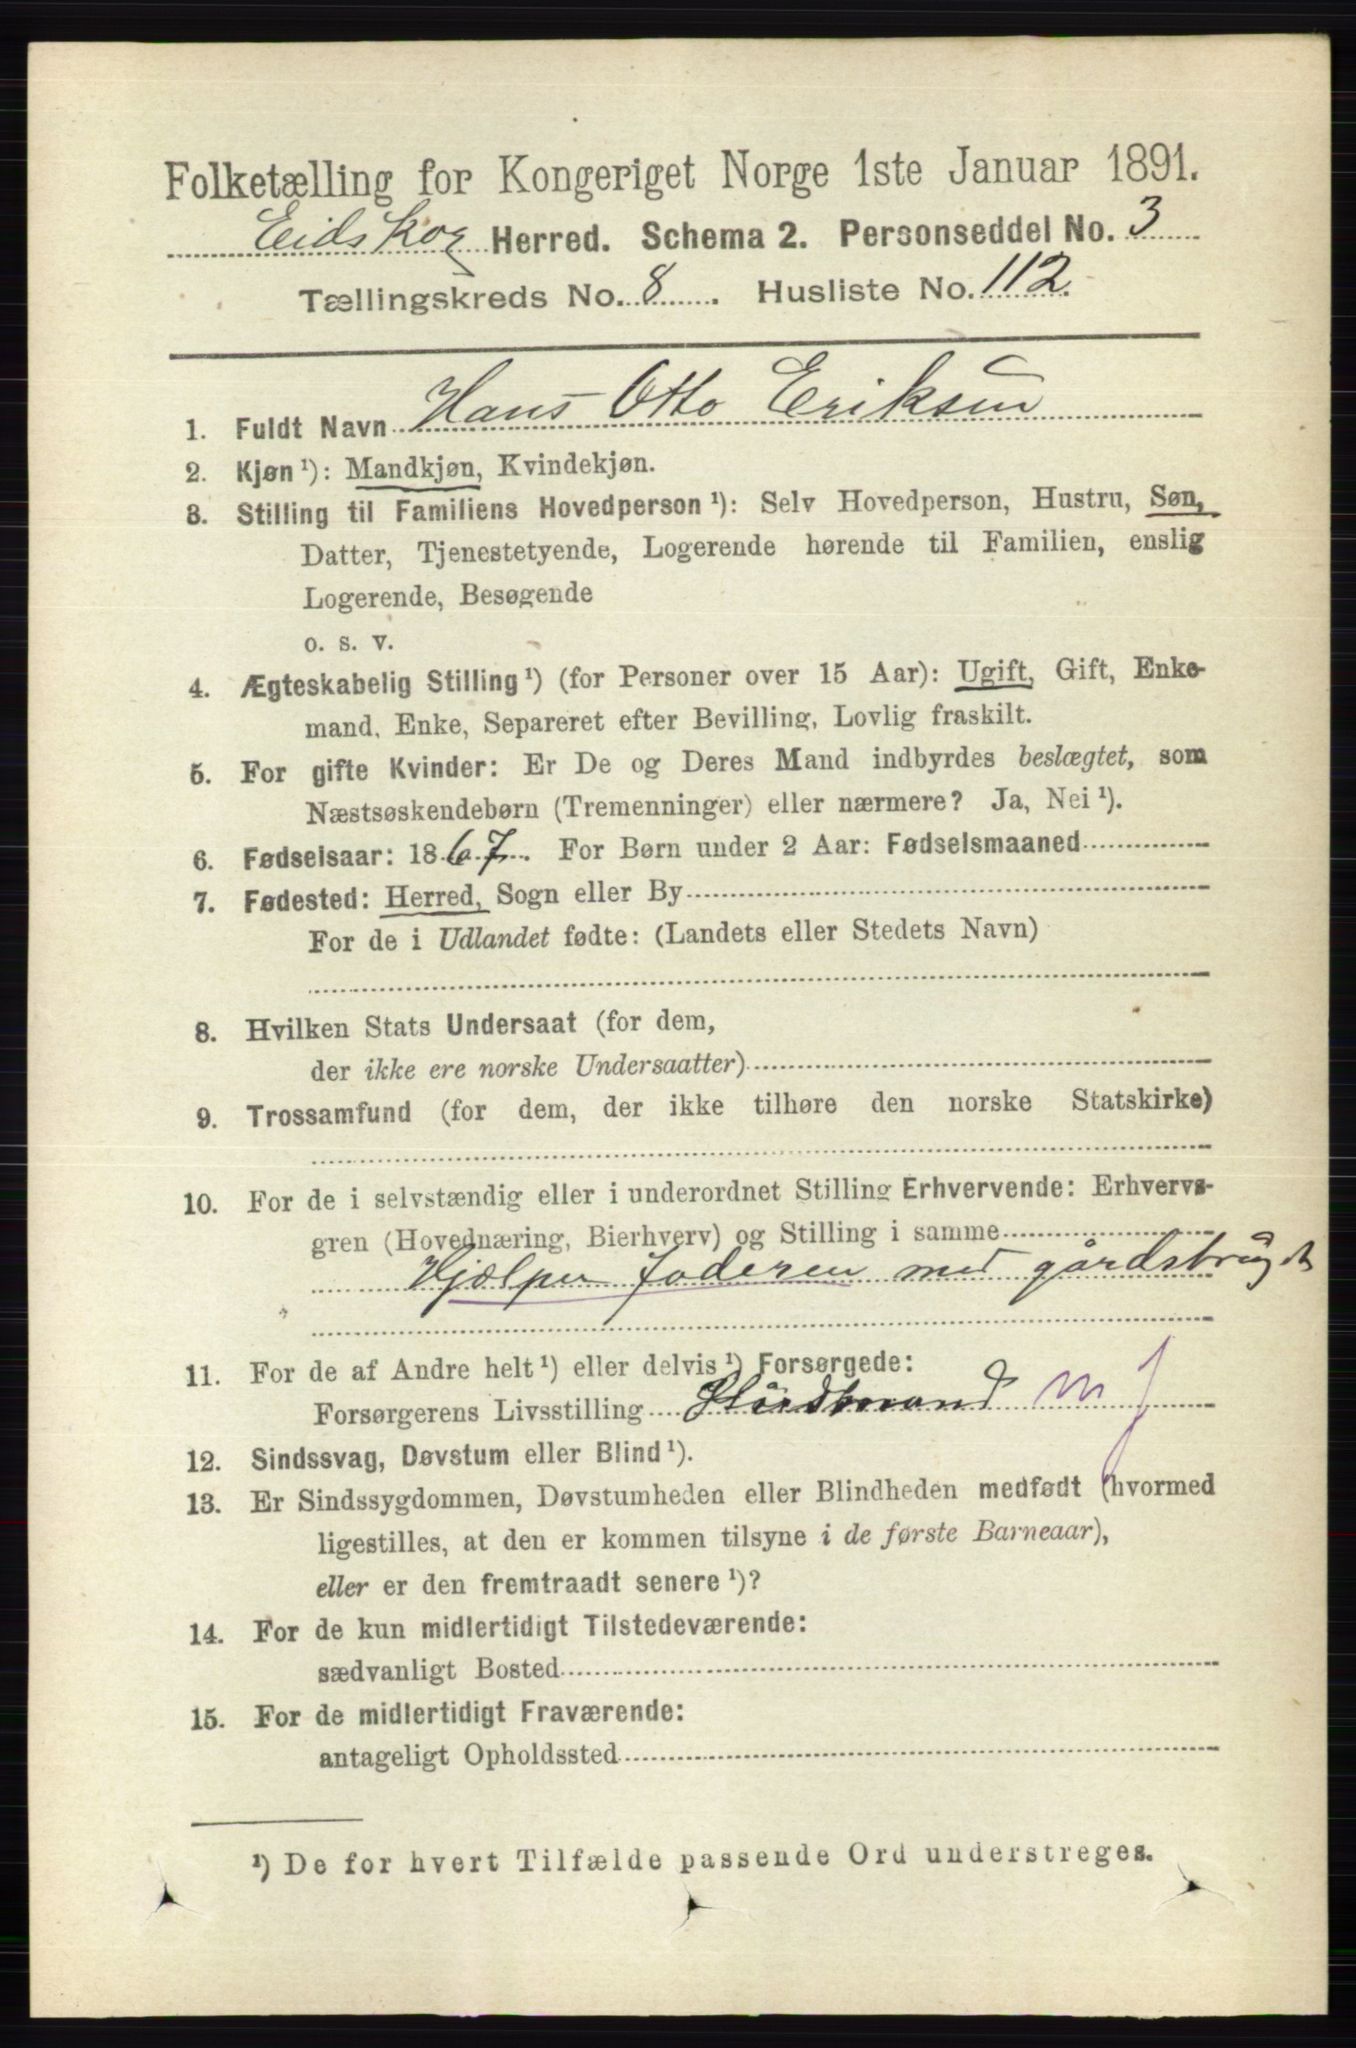 Folketælling for Kongeriget Norge 1ste Januar 1891.
Eidskog Herred. Schema 2. Personseddel No. 3
Tællingskreds No. 8. Husliste No. 112.
1. Fuldt Navn Hans Otto Eriksen
2. Kjøn ¹): Mandkjøn, Kvindekjøn.
3. Stilling til Familiens Hovedperson ¹): Selv Hovedperson, Hustru, Søn,
Datter, Tjenestetyende, Logerende hørende til Familien, enslig
Logerende, Besøgende
o. s. v.
4. Ægteskabelig Stilling ¹) (for Personer over 15 Aar): Ugift, Gift, Enke-
mand, Enke, Separeret efter Bevilling, Lovlig fraskilt.
5. For gifte Kvinder: Er De og Deres Mand indbyrdes beslægtet, som
Næstsøskendebørn (Tremenninger) eller nærmere? Ja, Nei ¹).
6. Fødselsaar: 1867. For Børn under 2 Aar: Fødselsmaaned
7. Fødested: Herred, Sogn eller By
For de i Udlandet fødte: (Landets eller Stedets Navn)
8. Hvilken Stats Undersaat (for dem,
der ikke ere norske Undersaatter)
9. Trossamfund (for dem, der ikke tilhøre den norske Statskirke)
10. For de i selvstændig eller i underordnet Stilling Erhvervende: Erhvervs-
gren (Hovednæring, Bierhverv) og Stilling i samme
Hjælper faderen med gårdsbruget
11. For de af Andre helt ¹) eller delvis ¹) Forsørgede:
Forsørgerens Livsstilling Husmand m J
12. Sindssvag, Døvstum eller Blind ¹).
13. Er Sindssygdommen, Døvstumheden eller Blindheden medfødt (hvormed
ligestilles, at den er kommen tilsyne i de første Barneaar),
eller er den fremtraadt senere ¹)?
14. For de kun midlertidigt Tilstedeværende:
sædvanligt Bosted
15. For de midlertidigt Fraværende:
antageligt Opholdssted
¹) De for hvert Tilfælde passende Ord understreges.